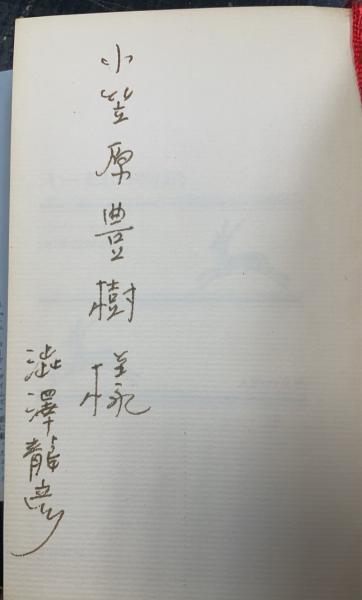 小笠原豊樹様
澁澤龍彦